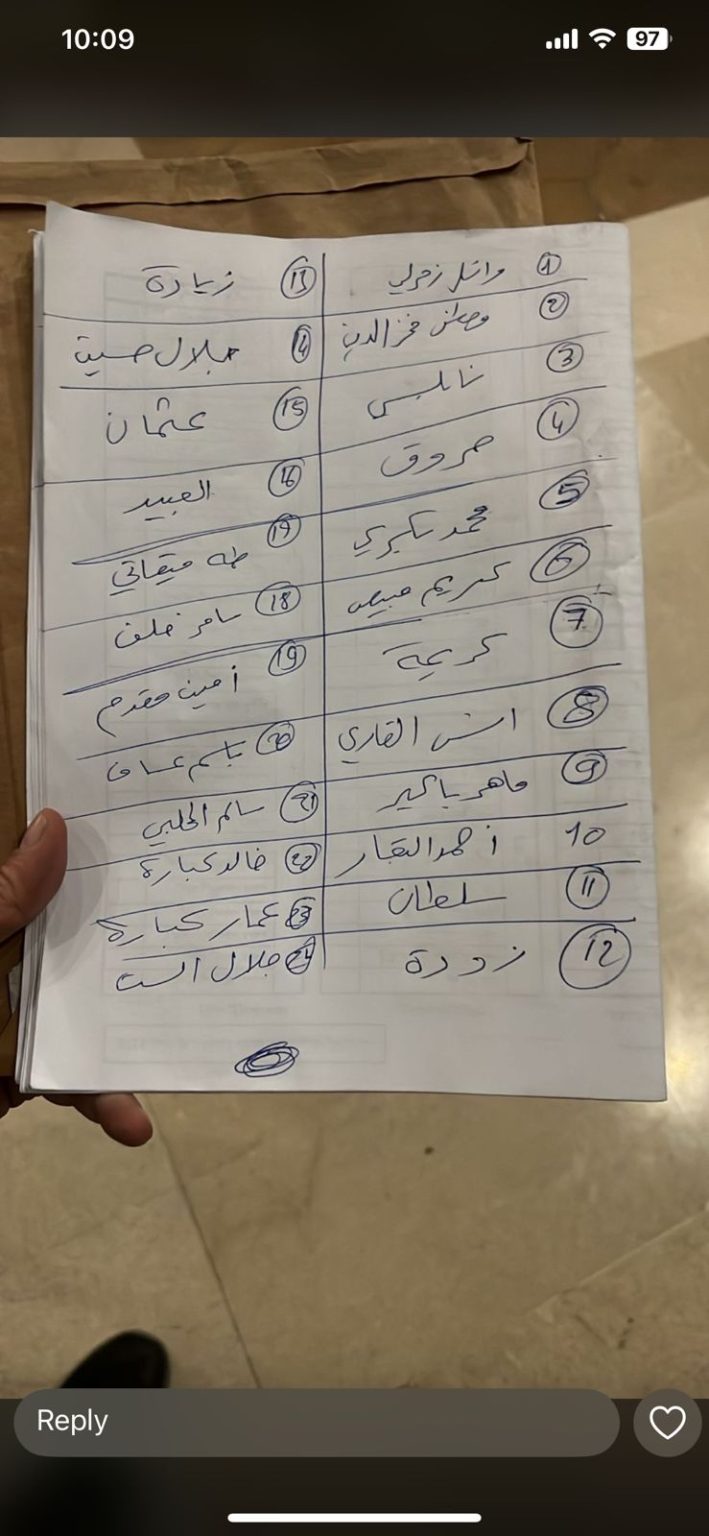 10:09
97
① وائل زمرلي
② مصطفى فخر الدين
③ نابلسي
④ مروق
⑤ محمد شكيري
⑥ كريم مبيض
⑦ كريمة
⑧ انس القاري
⑨ ماهر باكير
10 أحمد النجار
⑪ سلطان
⑫ زودة
⑬ زيادة
⑭ جلال حسين
⑮ عثمان
⑯ العبيد
⑰ طه ميقاتي
⑱ سامر خلف
⑲ أمين مقدم
⑳ باسم عساف
㉑ سالم الحلبي
㉒ خالد كبارة
㉓ عمار كبارة
㉔ جلال الست
Reply